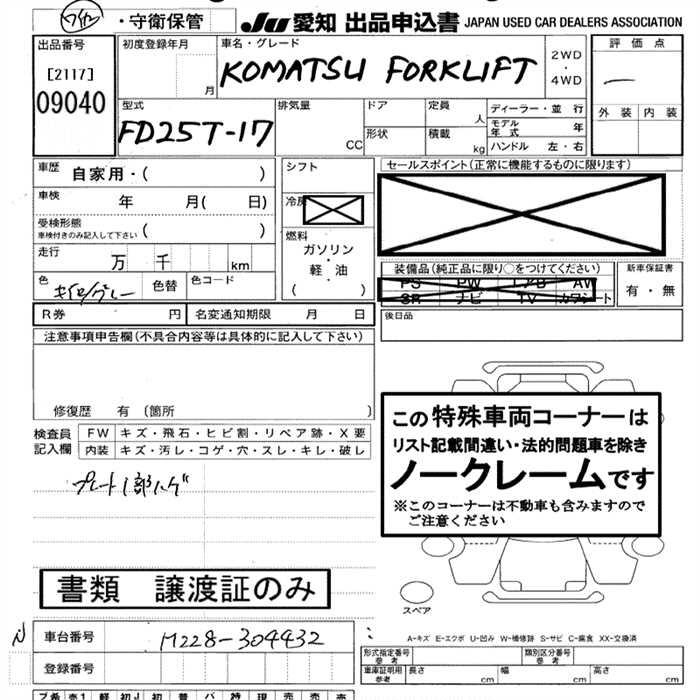 ・守衛保管
JU 愛知 出品申込書 JAPAN USED CAR DEALERS ASSOCIATION
出品番号
[2117]
09040
初度登録年月
月
車名・グレード
KOMATSU FORKLIFT
2WD
・
4WD
評価点
外装 内装
型式
FD25T-17
排気量
CC
ドア
形状
定員
人
積載
kg
ディーラー・並行
モデル年式 年
ハンドル 左・右
車歴
自家用・( )
車検 年 月( 日)
受検形態
車検付きのみ記入して下さい ( )
走行 万 千 km
色 キイロ/グレー 色替 色コード
シフト
冷房
燃料
ガソリン
・
軽・油
( )
セールスポイント(正常に機能するものに限ります)
装備品(純正品に限り○をつけてください)
PS PW エアB AW
SR ナビ TV カワシート
新車保証書
有・無
後日品
R券 円 名変通知期限 月 日
注意事項申告欄(不具合内容等は具体的に記入して下さい)
修復歴 有 (箇所 )
検査員
記入欄
FW キズ・飛石・ヒビ割・リペア跡・X要
内装 キズ・汚レ・コゲ・穴・スレ・キレ・破レ
プレート1部ハゲ
この特殊車両コーナーは
リスト記載間違い・法的問題車を除き
ノークレームです
※このコーナーは不動車も含みますので
ご注意ください
書類 譲渡証のみ
スペア
A-キズ E-エクボ U-凹み W-補修跡 S-サビ C-腐食 XX-交換済
車台番号 M228-304432
登録番号
形式指定番号
参考
類別区分番号
参考
車両寸法
参考
長さ cm 幅 cm 高さ cm